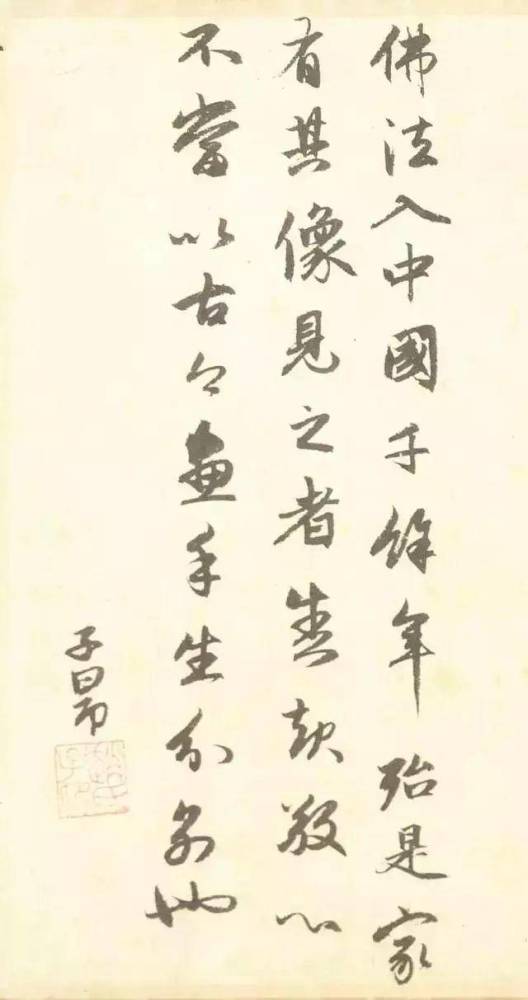 佛法入中國千餘年殆是家
有其像見之者悉起敬心
不當以古今畫手生分別也
子昂
趙氏子昂